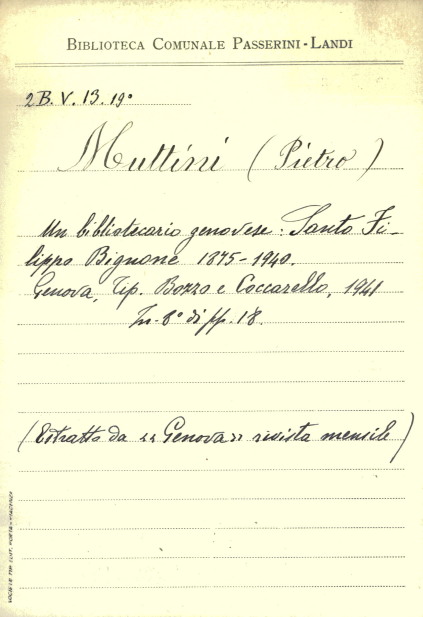 BIBLIOTECA COMUNALE PASSERINI-LANDI
2B. V. 13. 19°
Muttini (Pietro)
Un bibliotecario genovese: Santo Fi-
lippo Bignone 1875-1940.
Genova, Tip. Bozzo e Coccarello, 1941
In-8° di pp. 18.
(Estratto da «Genova» rivista mensile)